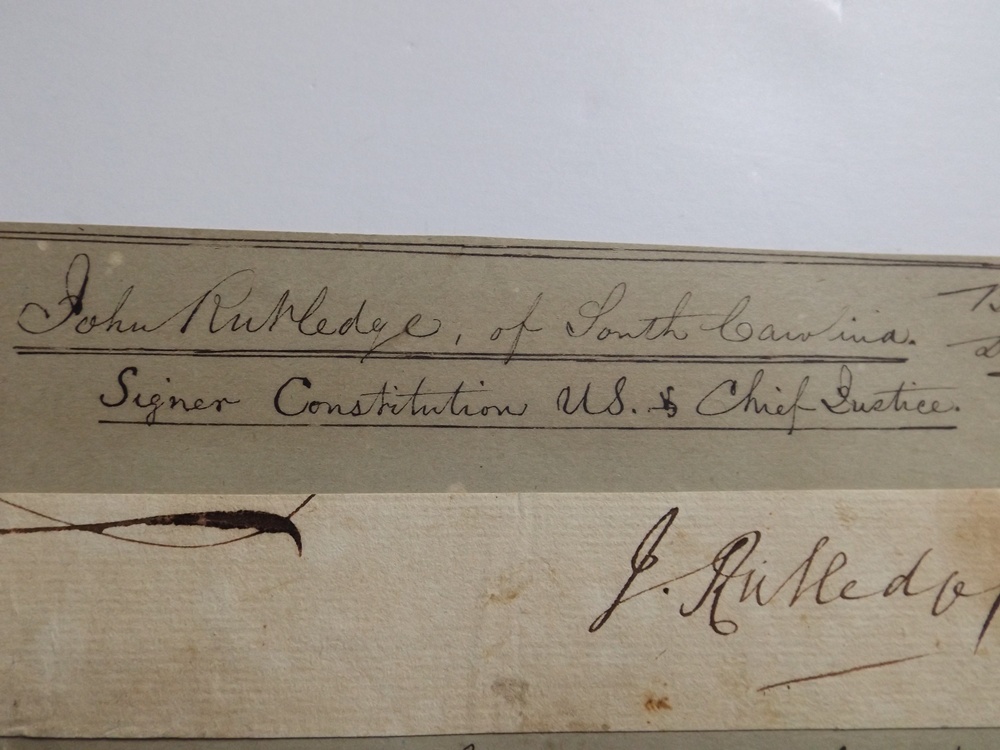 John Rutledge, of South Carolina.
Signer Constitution U.S. & Chief Justice.
J. Rutledge